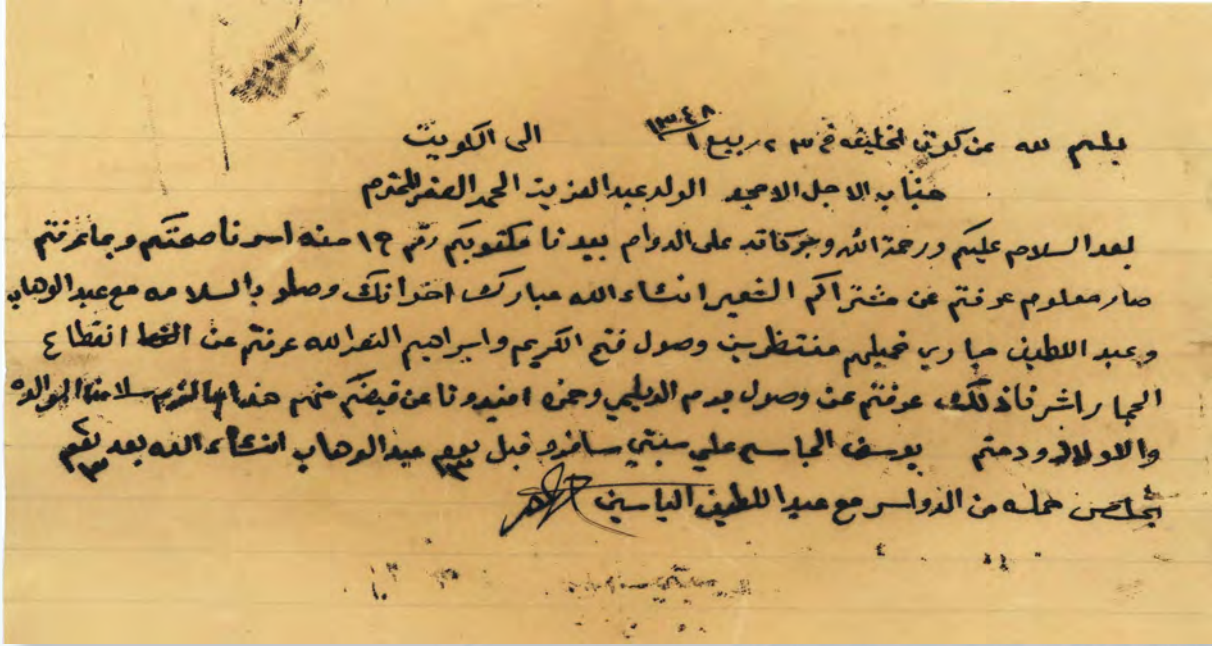 بسم الله من كوت الخليفه في ٢٣ ربيع ١ ١٣٤٨ الى الكويت
جناب الاجل الامجد الولد عبدالعزيز الحمد الصقر المحترم
بعد السلام عليكم ورحمة الله وبركاته على الدوام بيدنا مكتوبكم رقم ١٩ منه اسرنا صحتكم وما عرفتم
صار معلوم عرفتم عن مشتراكم الشعير انشاء الله مبارك اخوانك وصلو بالسلامه مع عبدالوهاب
وعبد اللطيف جاري تحميلهم منتظرين وصول فتح الكريم وابراهيم النصرالله عرفتم عن انقطاع
عرفتم عن وصول وحمزه افيدونا عن قبضكم منهم هذا مالزم سلامنا الوالده
والاولاد ودمتم يوسف الجاسم علي سبتي سافرو قبل يوم عبدالوهاب انشاء الله بعد
يخلص حمله من الدواسر مع عبد اللطيف الياسين